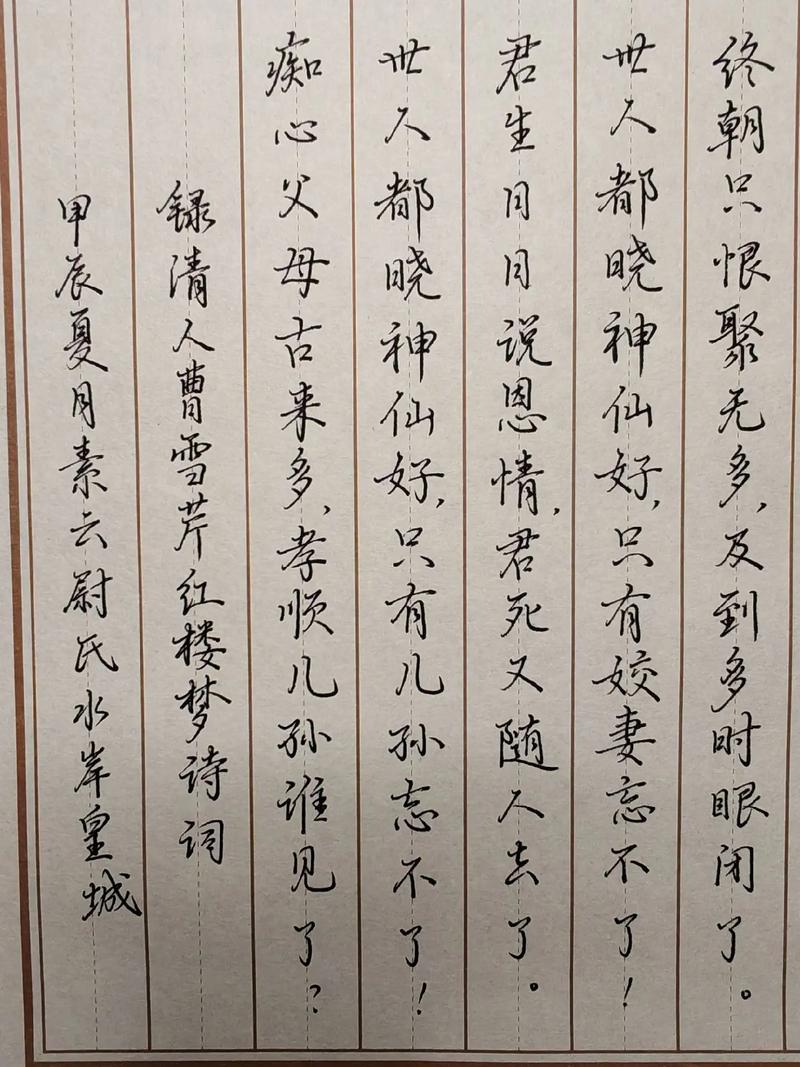 终朝只恨聚无多,及到多时眼闭了。
世人都晓神仙好,只有姣妻忘不了!
君生日日说恩情,君死又随人去了。
世人都晓神仙好,只有儿孙忘不了!
痴心父母古来多,孝顺儿孙谁见了?
録清人曹雪芹红楼梦诗词
甲辰夏月素云尉氏水岸皇城